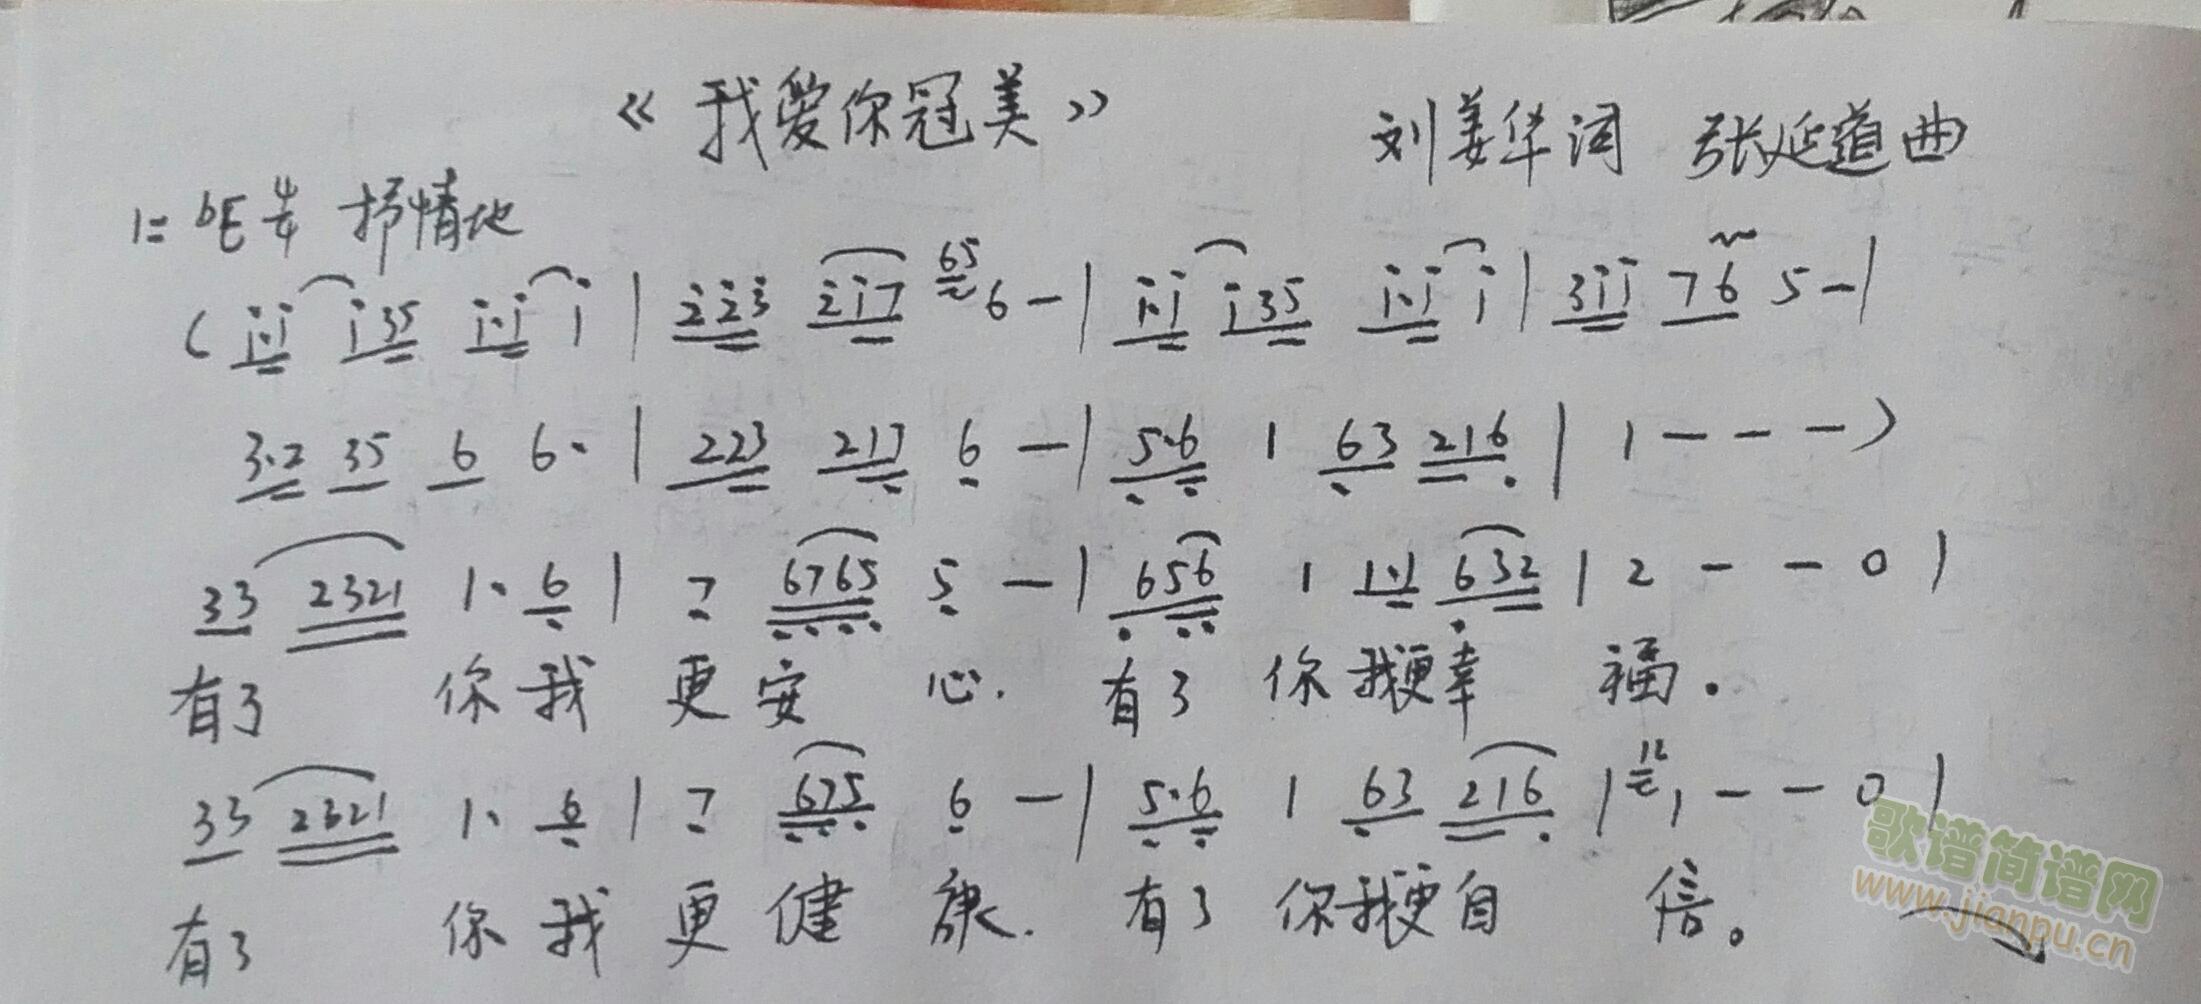 《我爱你冠美》
刘姜华词 张延道曲
1=bE 4/4 抒情地
(i·i i35 i·i i | 2̇2̇3̇ 2̇i7 65 6 — | i·i i35 i·i i | 3ii 76 5 — |
3·2 35 6 6· | 223 217 6 — | 5·6 1 63 216 | 1 — — — )
33 2321 1· 6 | 7 6765 5 — | 656 1 1·1 632 | 2 — — 0 |
有了 你我 更安 心. 有了 你我更幸 福.
33 2321 1· 6 | 7 675 6 — | 5·6 1 63 216 | 12 1 — — 0 |
有了 你我 更健 康. 有了 你我更自 信。
歌谱简谱网
www.jianpu.cn